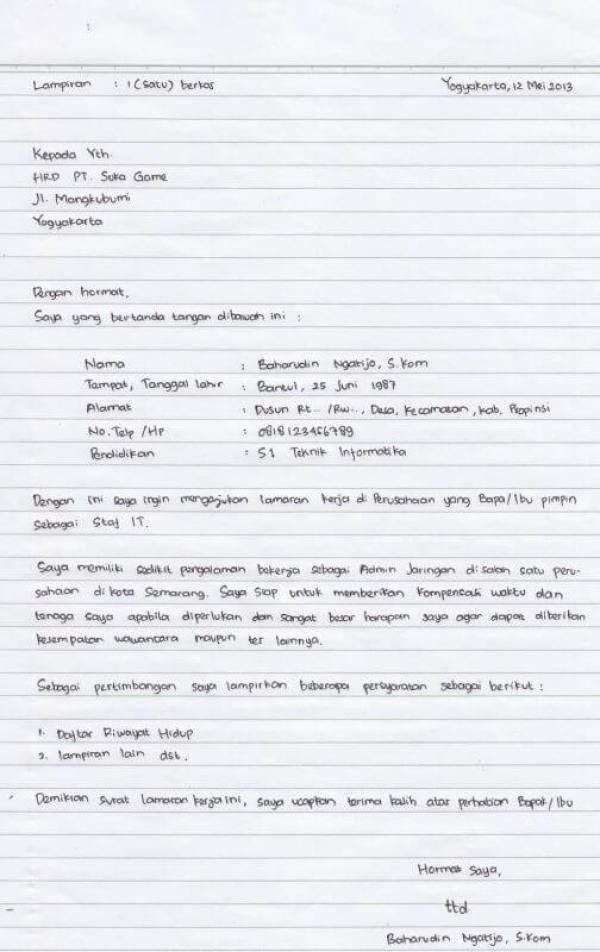 Lampiran : 1 (satu) berkas Yogyakarta, 12 Mei 2013
Kepada Yth.
HRD PT. Suka Game
Jl. Mangkubumi
Yogyakarta
Dengan hormat,
Saya yang bertanda tangan dibawah ini :
Nama : Baharudin Ngatijo, S.Kom
Tampat, Tanggal lahir : Bantul, 25 Juni 1987
Alamat : Dusun Rt.. /Rw.., Desa, Kecamatan, Kab, Propinsi
No. Telp /HP : 0818123456789
Pendidikan : S1 Teknik Informatika
Dengan ini saya ingin mengajukan lamaran kerja di Perusahaan yang Bapa/Ibu pimpin
sebagai Staf IT.
Saya memiliki sedikit pengalaman bekerja sebagai Admin Jaringan di salah satu peru-
sahaan di kota Semarang. Saya siap untuk memberikan kompensasi waktu dan
tenaga saya apabila diperlukan dan sangat besar harapan saya agar dapat diberikan
kesempatan wawancara maupun tes lainnya.
Sebagai pertimbangan saya lampirkan beberapa persyaratan sebagai berikut :
1. Daftar Riwayat Hidup
2. lampiran lain dst.
Demikian surat lamaran kerja ini, saya ucapkan terima kasih atas perhatian Bapak/Ibu
Hormat Saya,
ttd
Baharudin Ngatijo, S.Kom